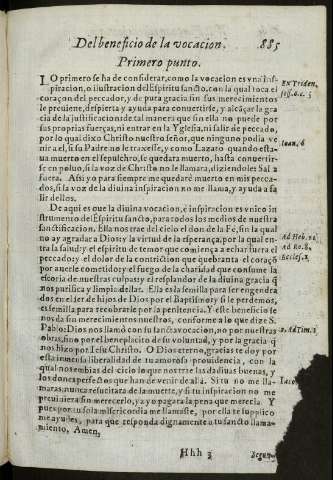 Del beneficio de la vocacion. 885
Primero punto.
LO primero se ha de considerar, como la vocacion es vna ins-
piracion, o ilustracion del Espiritu sancto, con la qual toca el
coraçon del peccador, y de pura gracia sin sus merecimientos
le preuiene, despierta y ayuda para conuertirse, y alcãçar la gra-
cia de la justificacion: de tal manera que sin ella no puede por
sus propias fuerças, ni entrar en la Yglesia, ni salir de peccado,
por lo qual dixo Christo nuestro señor, que ninguno podia ve
nir a el, si su Padre no le traxesse, y como Lazaro quando esta-
ua muerto en el sepulchro, se quedara muerto, hasta conuertir-
se en poluo, si la voz de Christo no le llamara, diziendole: Sal a
fuera. Assi yo para siempre me quedarè muerto en mis pecca-
dos, si la voz de la diuina inspiracion no me llama, y ayuda a sa
lir dellos.
De aqui es que la diuina vocacion, è inspiracion es vnico in-
strumento del Espiritu sancto, para todos los medios de nuestra
sanctificacion. Ella nos trae del cielo el don de la Fè, sin la qual
no ay agradar a Dios; y la virtud de la esperança, por la qual en-
tra la salud; y el espiritu de temor que comiença a echar fuera el
peccador; y el dolor de la contricion que quebranta el coraçõ
por auerle cometido; y el fuego de la charidad que consume la
escoria de nuestras culpas; y el resplandor de la diuina gracia q̃
nos purifica y limpia dellas. Ella es la semilla para ser engendra
dos en el ser de hijos de Dios por el Baptismo; y si le perdemos,
es semilla para recobrarle por la penitencia. Y este beneficio se
nos da sin merecimientos nuestros, conforme a lo que dize S.
Pablo: Dios nos llamò con su sancta vocacion, no por nuestras
obras, sino por el beneplacito de su voluntad, y por la gracia q̃
nos hizo por Iesu Christo. O Dios eterno, gracias te doy por
esta inmensa liberalidad de tu amorosa prouidencia, con la
qual nos embias del cielo lo que nos trae las dadiuas buenas, y
los dones perfectos que han de venir de allà. Si tu no me lla-
maras, nunca resucitara de la muerte, y si tu inspiracion no me
preuiniera sin merecerlo, ya yo pagara la pena que merecia. Y
pues por tu sola misericordia me llamaste, por ella te suplico
me ayudes, para que responda dignamente a tu sancto llama-
miento, Amen.
Ex Triden.
sess. 6. c. 5
Ioan. 6
Ad Heb. 11.
Ad Ro. 8.
Eccles. 1.
2. Ad Tim. 1
Iaco
Hhh 3
Segun